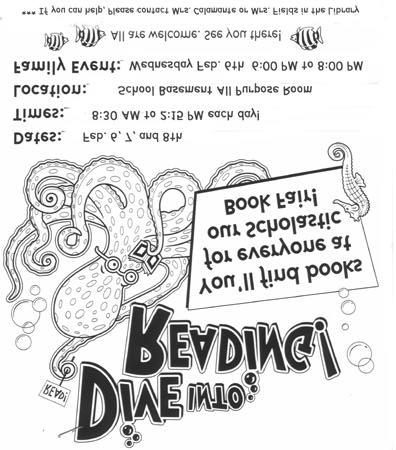 DIVE INTO
READING!
READ!
You'll find books
for everyone at
our Scholastic
Book Fair!
Dates: Feb. 6, 7, and 8th
Times: 8:30 AM to 2:15 PM each day!
Location: School Basement All Purpose Room
Family Event: Wednesday Feb. 6th 6:00 PM to 8:00 PM
All are welcome. See you there!
*** If you can help, Please contact Mrs. Calamante or Mrs. Fields in the Library